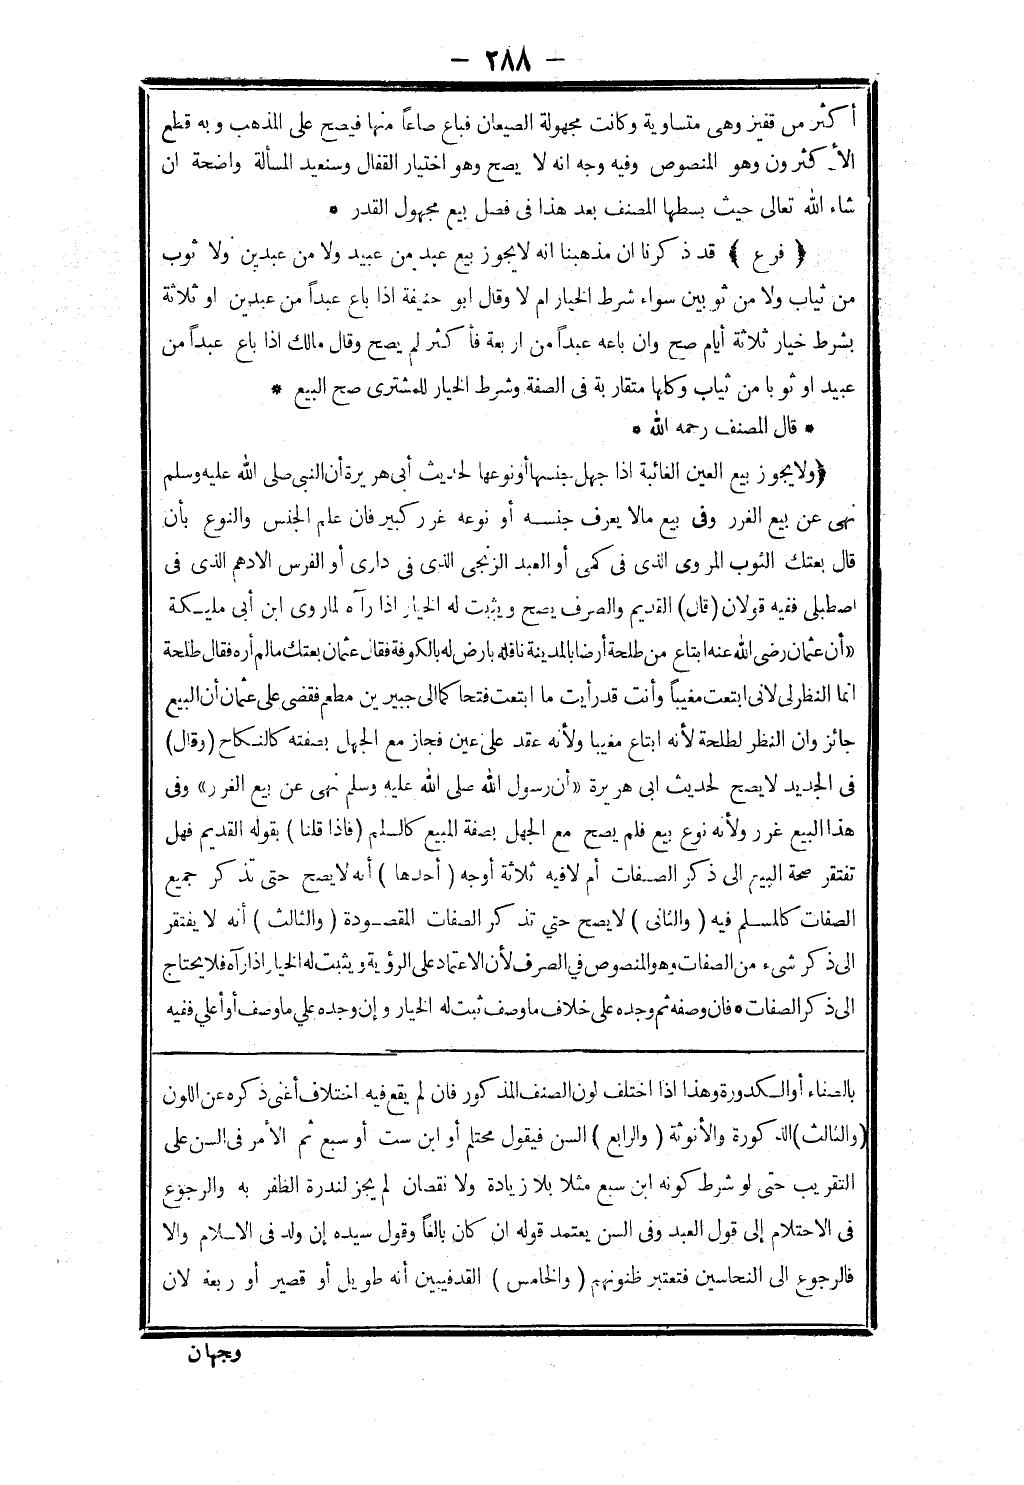 — ٢٨٨ —
أكثر من قفيز وهى متساوية وكانت مجهولة الصيعان فباع صاعاً منها فيصح على المذهب وبه قطع
الأكثرون وهو المنصوص وفيه وجه انه لا يصح وهو اختيار القفال وسنعيد المسألة واضحة ان
شاء الله تعالى حيث بسطها المصنف بعد هذا فى فصل بيع مجهول القدر *
﴿ فرع ﴾ قد ذكرنا ان مذهبنا انه لايجوز بيع عبد من عبيد ولا من عبدين ولا ثوب
من ثياب ولا من ثوبين سواء شرط الخيار ام لا وقال ابو حنيفة اذا باع عبداً من عبدين او ثلاثة
بشرط خيار ثلاثة أيام صح وان باعه عبداً من اربعة فأكثر لم يصح وقال مالك اذا باع عبداً من
عبيد او ثوبا من ثياب وكلها متقاربة فى الصفة وشرط الخيار للمشترى صح البيع *
* قال المصنف رحمه الله *
﴿ولايجوز بيع العين الغائبة اذا جهل جنسها أونوعها لحديث أبى هريرة أن النبى صلى الله عليه وسلم
نهى عن بيع الغرر وفى بيع مالا يعرف جنسه أو نوعه غرر كبير فان علم الجنس والنوع بأن
قال بعتك الثوب المروى الذى فى كمى أو العبد الزنجى الذى فى دارى أو الفرس الادهم الذى فى
اصطبلى ففيه قولان (قال) القديم والصرف يصح ويثبت له الخيار اذا رآه لماروى ابن أبى مليكة
«أن عثمان رضى الله عنه ابتاع من طلحة أرضا بالمدينة ناقله بارض له بالكوفة فقال عثمان بعتك مالم أره فقال طلحة
انما النظرلى لانى ابتعت مغيباً وأنت قد رأيت ما ابتعت فتحاكما الى جبير بن مطعم فقضى على عثمان أن البيع
جائز وان النظر لطلحة لأنه ابتاع مغيبا ولأنه عقد على عين فجاز مع الجهل بصفته كالنكاح (وقال)
فى الجديد لايصح لحديث ابى هريرة «أن رسول الله صلى الله عليه وسلم نهى عن بيع الغرر» وفى
هذا البيع غرر ولأنه نوع بيع فلم يصح مع الجهل بصفة المبيع كالسلم (فاذا قلنا) بقوله القديم فهل
تفتقر صحة البيع الى ذكر الصفات أم لافيه ثلاثة أوجه (أحدها) أنه لايصح حتى تذكر جميع
الصفات كالمسلم فيه (والثانى) لايصح حتي تذكر الصفات المقصودة (والثالث) أنه لا يفتقر
الى ذكر شىء من الصفات وهو المنصوص في الصرف لأن الاعتماد على الرؤية ويثبت له الخيار اذا رآه فلا يحتاج
الى ذكر الصفات * فان وصفه ثم وجده على خلاف ما وصف ثبت له الخيار وإن وجده علي ما وصف أو أعلي ففيه
بالصفاء أو الكدورة وهذا اذا اختلف لون الصنف المذكور فان لم يقع فيه اختلاف أغنى ذكره عن اللون
(والثالث) الذكورة والأنوثة (والرابع) السن فيقول محتلم أو ابن ست أو سبع ثم الأمر فى السن على
التقريب حتى لو شرط كونه ابن سبع مثلا بلا زيادة ولا نقصان لم يجز لندرة الظفر به والرجوع
فى الاحتلام إلى قول العبد وفى السن يعتمد قوله ان كان بالغاً وقول سيده إن ولد فى الاسلام والا
فالرجوع الى النحاسين فتعتبر ظنونهم (والخامس) القدفيبين أنه طويل أو قصير أو ربعة لان
وجهان